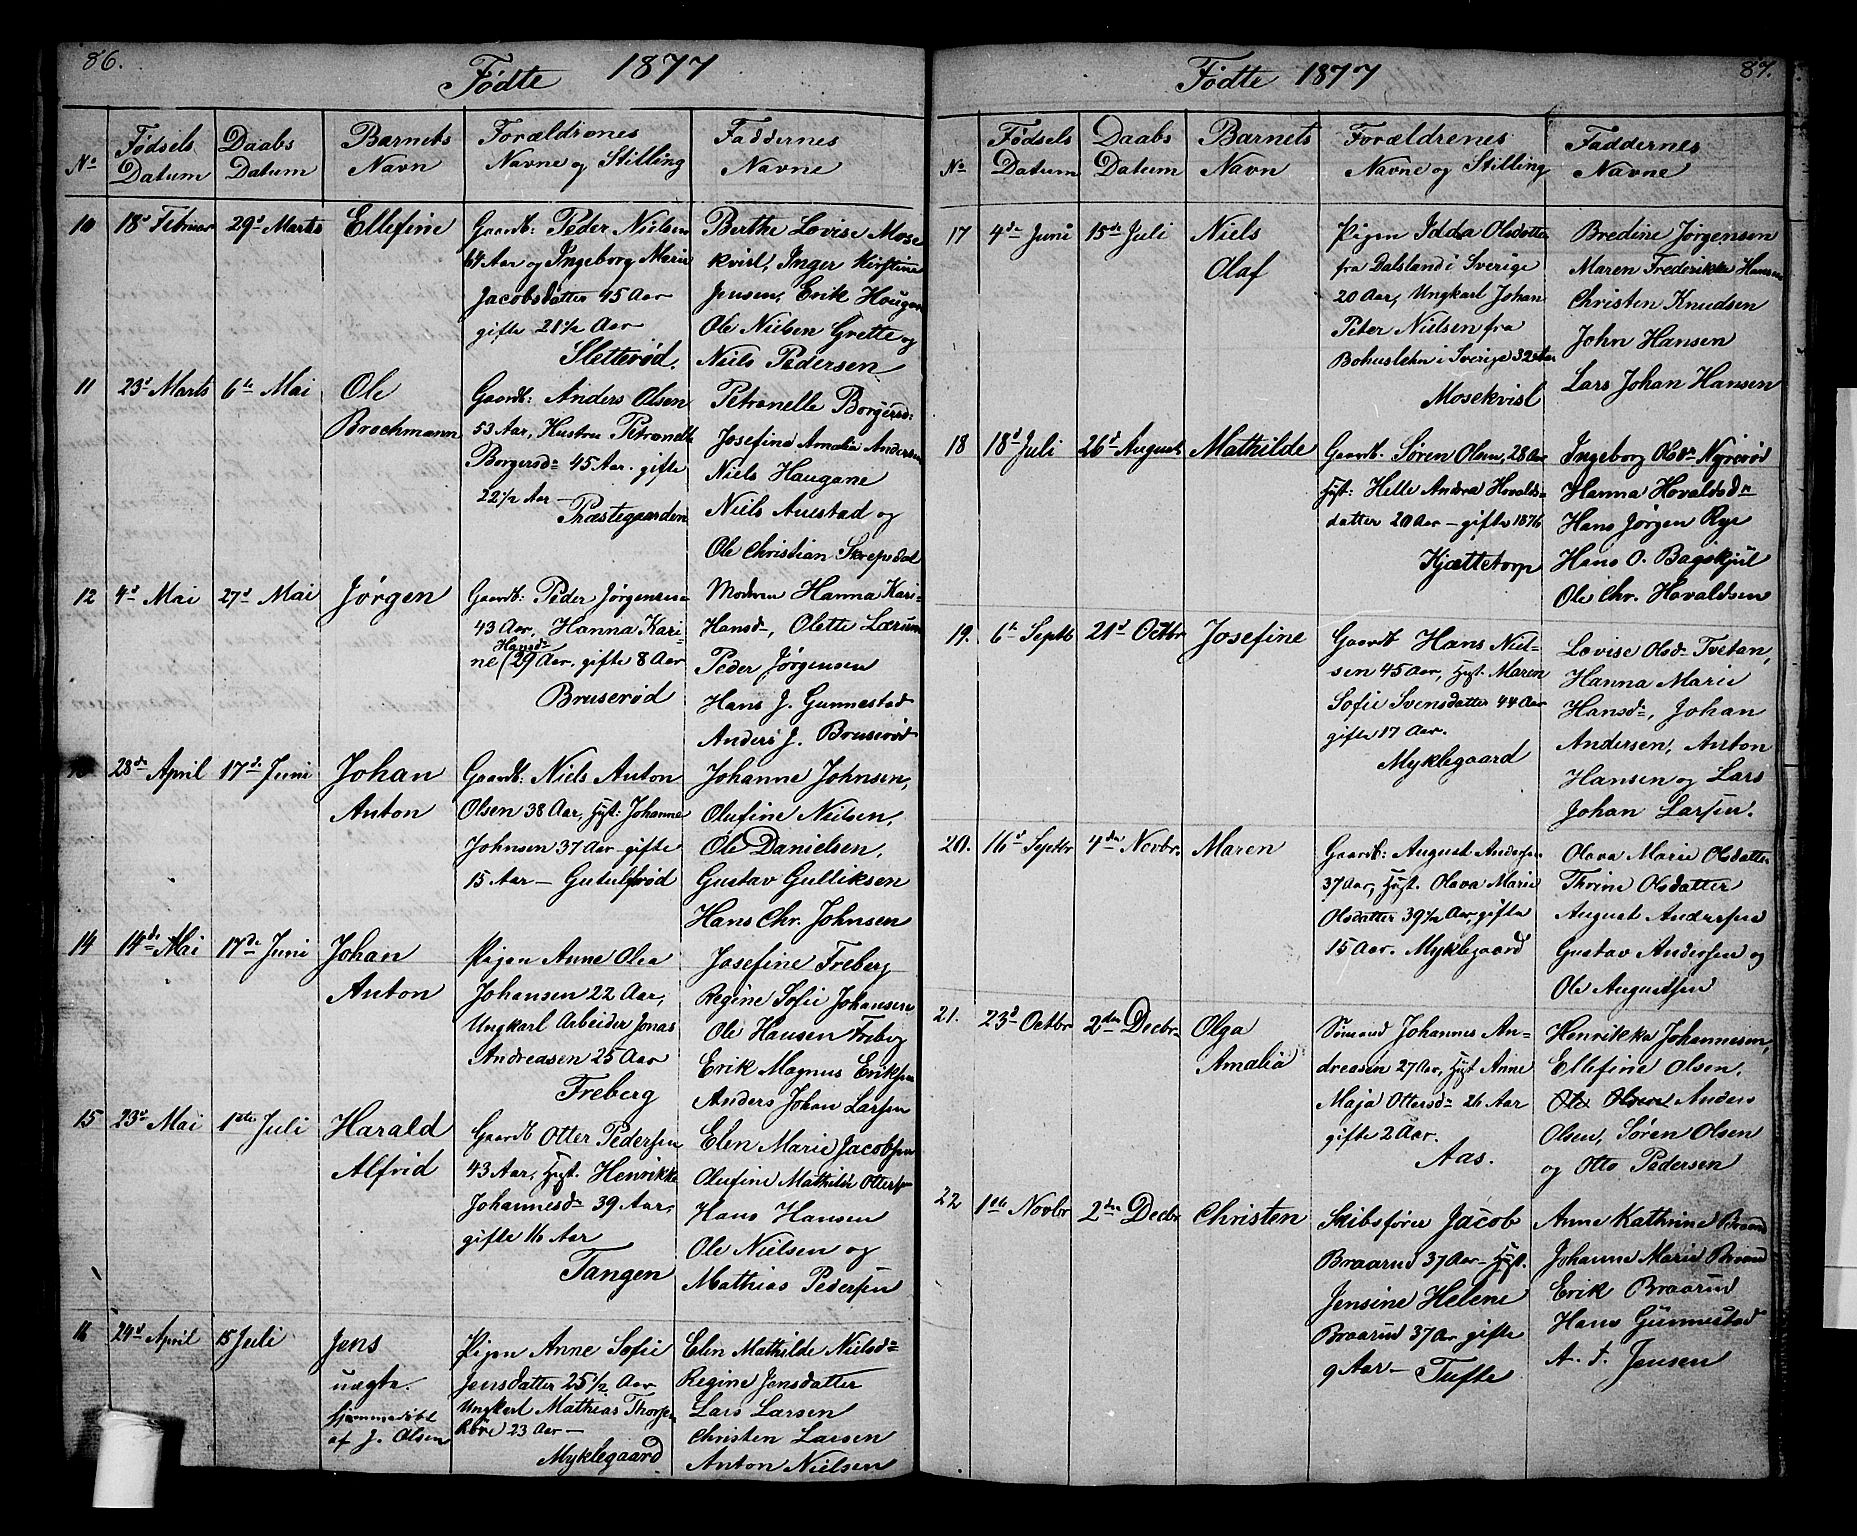 86.
Fødte 1877
No
Fødsels Datum
Daabs Datum
Barnets Navn
Forældrenes Navne og Stilling
Faddernes Navne
10
18d Februar
29d Marts
Ellefine
Gaardb: Peder Nielsen
64 Aar og Ingeborg Marie
Jacobsdatter 45 Aar
gifte 21 1/2 Aar
Sletterød.
Berthe Lovise Mose
kvisl, Inger Kirstine
Jensen, Erik Hougen
Ole Nielsen Grette og
Niels Pedersen
11
23d Marts
6te Mai
Ole
Brochmann
Gaardb: Anders Olsen
53 Aar, Hustru Petronelle
Borgersd= 45 Aar. gifte
22 1/2 Aar —
Præstegaarden
Petronelle Borgersd:
Josefine Amalia Andersen
Niels Haugane
Niels Auestad og
Ole Christian Skrepsdal
12
4d Mai
27d Mai
Jørgen
Gaardb: Peder Jørgensen
43 Aar, Hanna Kari-
Hansd=
ne (29 Aar, gifte 8 Aar
Bruserød
Moderen Hanna Kari=
Hansd=, Olette Lærum
Peder Jørgensen
Hans J. Gunnestad
Anders J. Bruserød
28de April
17de Juni
Johan
Anton
Gaardb: Niels Anton
Olsen 38 Aar, Hust: Johanne
Johnsen 37 Aar—gifte
15 Aar —
Johanne Johnsen,
Olufine Nielsen,
Ole Danielsen,
Gustav Gulliksen
Hans Chr. Johnsen
14
14de Mai
17de Juni
Johan
Anton
Pigen Anne Olea
Johansen 22 Aar,
Ungkarl Arbeider Jonas
Andreasen 25 Aar
Freberg
Josefine Freberg
Regine Sofie Johansen
Ole Hansen Freberg
Erik Magnus Eriksen
Anders Johan Larsen
15
23d Mai
1ste Juli
Harald
Alfrid
Gaardb Otter Pedersen
43 Aar, Hust. Henrikke
Johannesd= 39 Aar,
gifte 16 Aar
Tangen
Elen Marie Jacobsen
Olufine Mathilde
Hans Hansen
Ole Nielsen og
Mathias Pedersen
16
24d April
15 Juli
Jens
uægte.
hjemmedøbt
af J. Olsen
Pigen Anne Sofie
Jensdatter 25 1/2 Aar
Ungkarl Mathias
23 Aar —
Myklegaard
Elen Mathilde Nielsd=
Regine Jensdatter
Lars Larsen
Christen Larsen
Anton Nielsen
87.
Fødte 1877
No
Fødsels Datum
Daabs Datum
Barnets Navn
Forældrenes Navne og Stilling
Faddernes Navne
17
4de Juni
15de Juli
Niels
Olaf
Pigen Idda Olsdatter
fra Dalsland i Sverige
20 Aar, Ungkarl Johan
Peter Nielsen fra
Bohuslehn i Sverige 32 Aar
Mosekvisl
Bredine Jørgensen
Maren Frederikke Hansen
Christen Knudsen
John Hansen
Lars Johan Hansen
18
18d Juli
26d August
Mathilde
Gaardb. Søren Olsen, 28 Aar
Hust: Helle Andrea Hovalds=
datter 20 Aar — gifte 1876
Kjættetorp
Ingeborg Olsdn Nyrerød
Hanna Hovaldsdn
Hans Jørgen Rye
Hans O. Bagskjül
Ole Chr. Havaldsen
19.
6te Septb
21d Octbr
Josefine
Gaardb Hans Niel-
sen 45 Aar, Hust. Maren
Sofie Svensdatter 44 Aar
gifte 17 Aar.
Myklegaard
Lovise Olsd= Tvetan,
Hanna Marie
Hansd=, Johan
Andersen, Anton
Hansen og Lars
Johan Larsen.
20.
16d Septbr
4de Novbr.
Maren
Gaardb: August Andersen
37 Aar, Hust. Olava Marie
Olsdatter 39 1/2 Aar, gifte
15 Aar. Myklegaard
Olava Marie Olsdatter
Thrine Olsdatter
August Andersen
Gustav Andersen og
Ole Augustsen
21.
23d Octbr
2den Decbr.
Olga
Amalia
Sømand Johannes An=
dreasen 27 Aar, Hust Anne
Maja Ottersd= 26 Aar
gifte 2 Aar.
Aas.
Henrikka Johannesen,
Ellefine Olsen,
Ole Olsen Anders
Olsen, Søren Olsen
og Otto Pedersen
22
1ste Novbr
2den Decbr
Christen
Skibsfører Jacob
Braarud 37 Aar — Hust.
Jensine Helene
Braarud 37 Aar gifte
9 Aar — Tufte
Anne Kathrine Braarud
Johanne Marie Braarud
Erik Braarud
Hans Gunnestad
A. F. Jensen